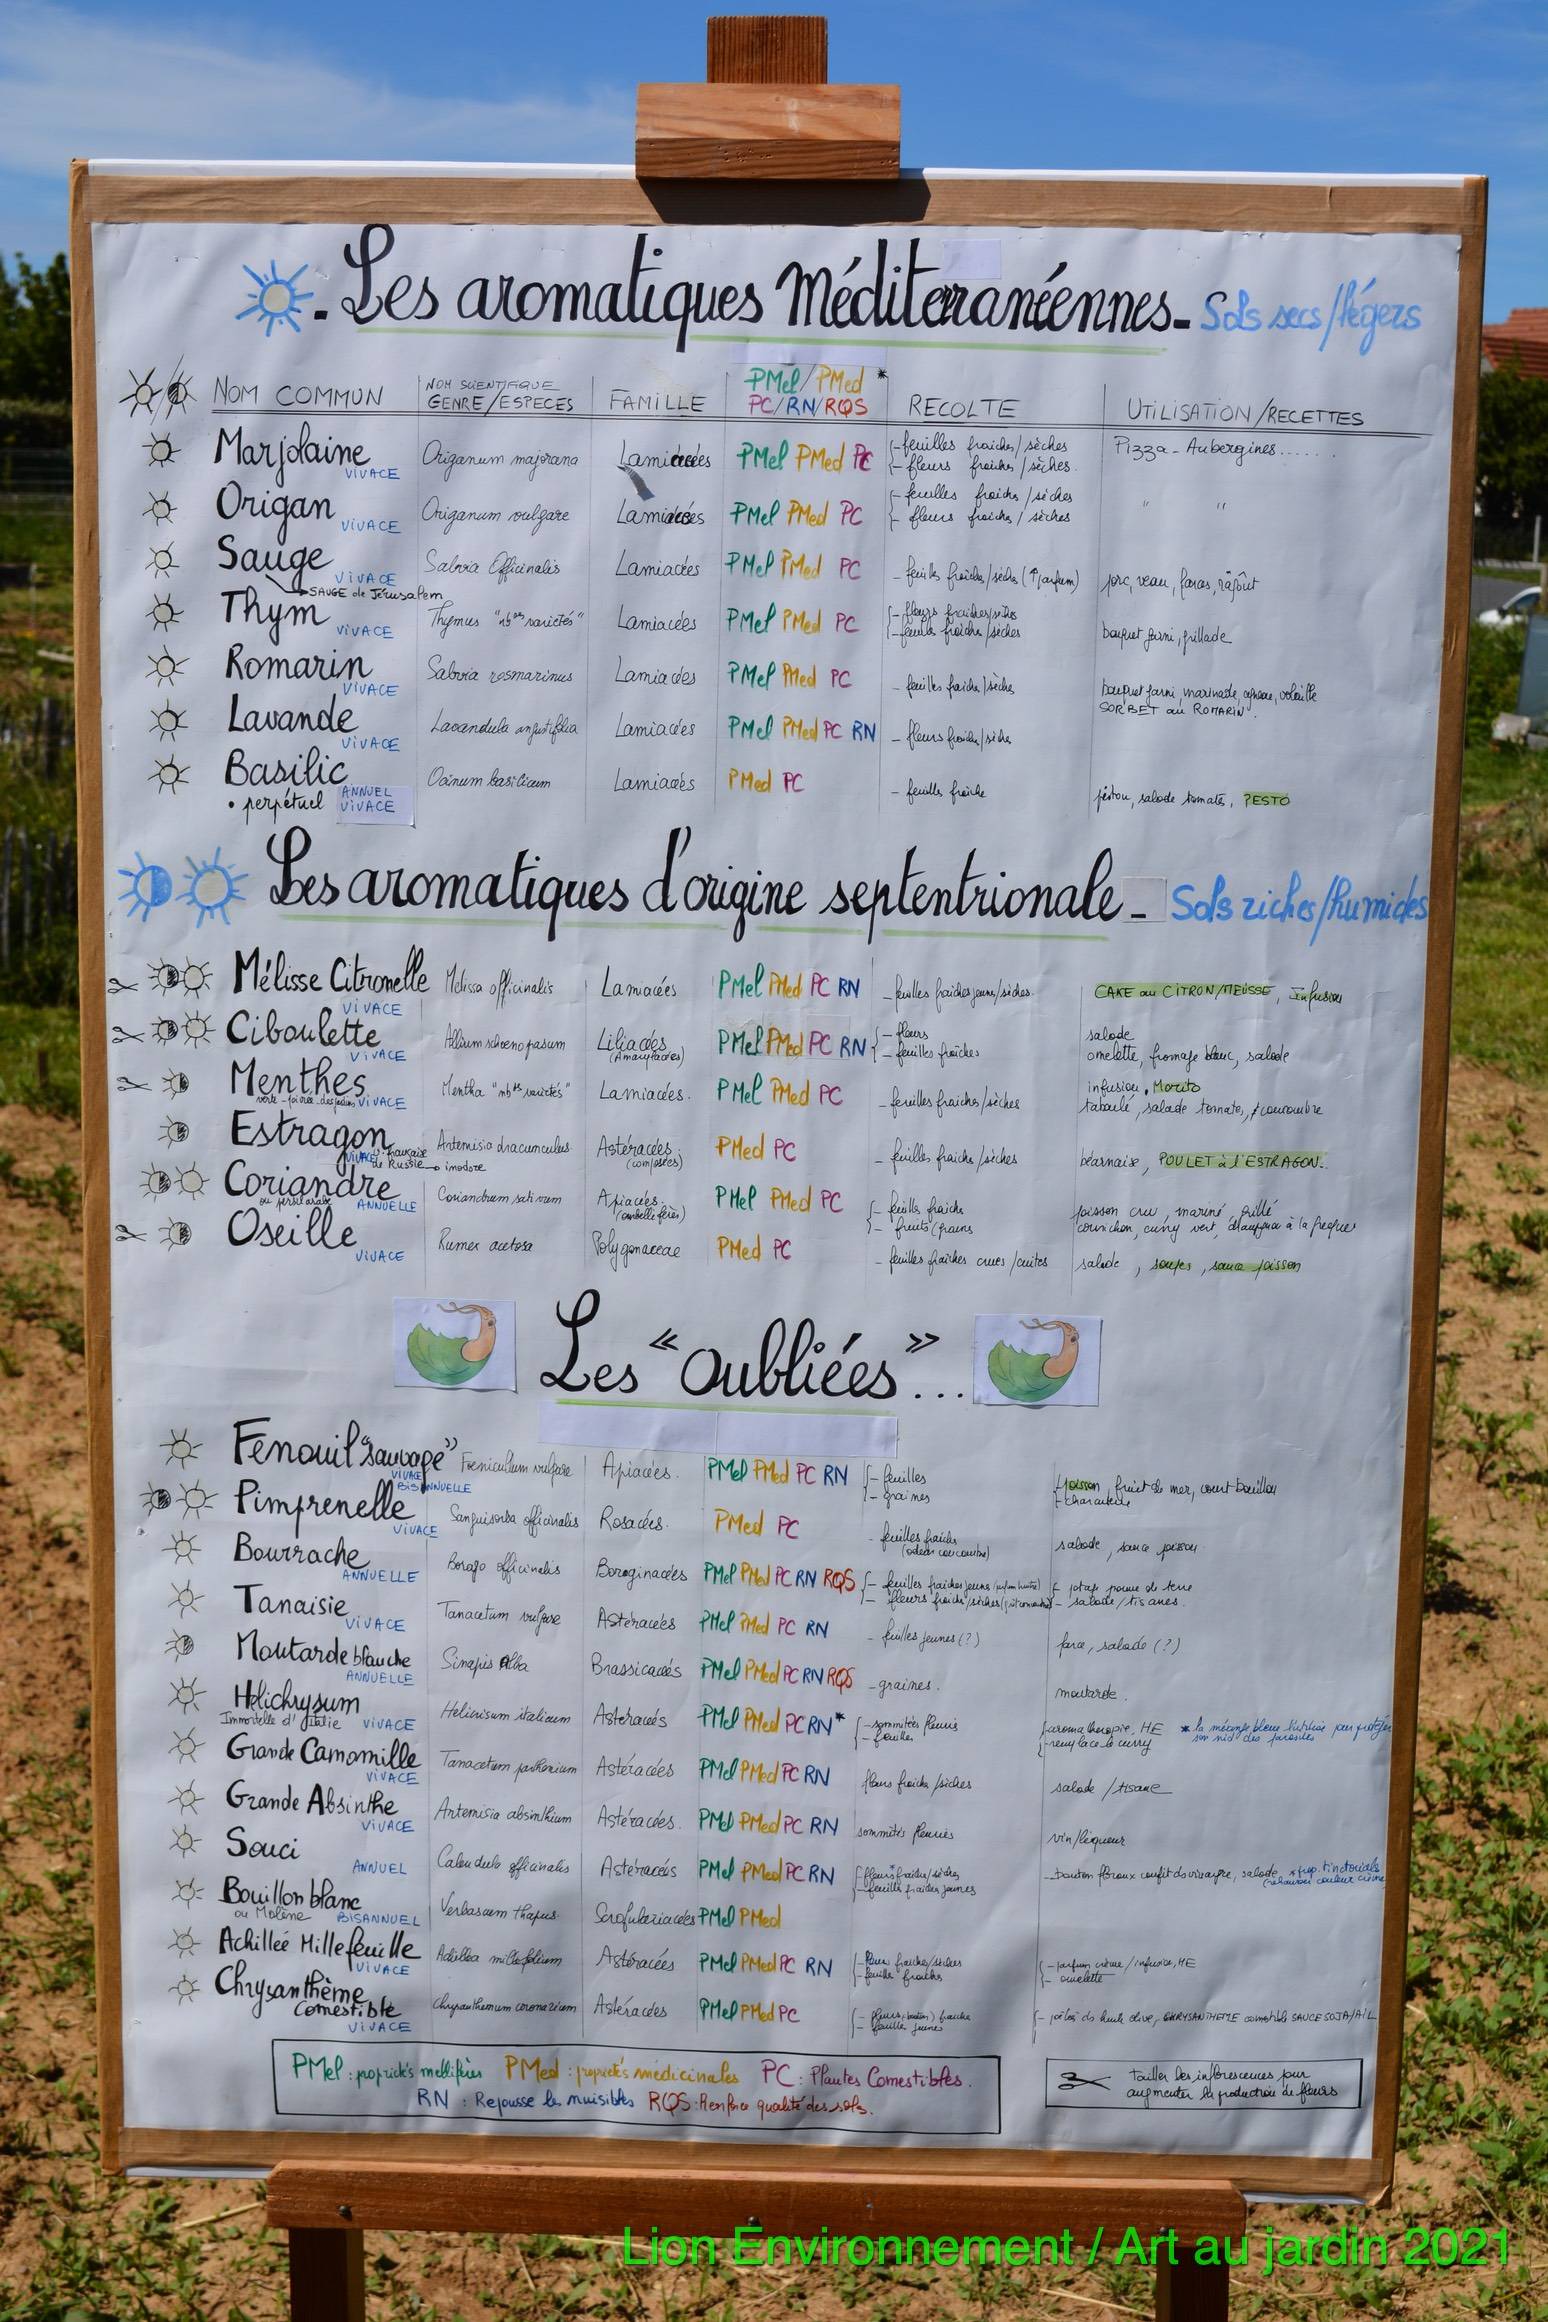 - Les aromatiques Méditerranéennes - Sols secs/légers
NOM COMMUN NOM SCIENTIFIQUE GENRE/ESPECES FAMILLE PMel/PMed * PC/RN/RQS RECOLTE UTILISATION/RECETTES
Marjolaine VIVACE Origanum majorana Lamiacées PMel PMed PC - feuilles fraîches/sèches - fleurs fraîches/sèches Pizza - Aubergines......
Origan VIVACE Origanum vulgare Lamiacées PMel PMed PC - feuilles fraîches/sèches - fleurs fraîches/sèches " "
Sauge VIVACE Salvia Officinalis Lamiacées PMel PMed PC - feuilles fraîches/sèches (↑parfum) porc, veau, farces,
SAUGE de Jérusalem
Thym VIVACE Thymus "nbses variétés" Lamiacées PMel PMed PC - fleurs fraîches/sèches - feuilles fraîches/sèches bouquet garni, grillade
Romarin VIVACE Salvia rosmarinus Lamiacées PMel PMed PC - feuilles fraîches/sèches bouquet garni, marinade, agneau, volaille
SORBET au ROMARIN
Lavande VIVACE Lavandula angustifolia Lamiacées PMel PMed PC RN - fleurs fraîches/sèches
Basilic ANNUEL Ocimum basilicum Lamiacées PMed PC - feuilles fraîches pistou, salade tomates, PESTO
• perpétuel VIVACE
Les aromatiques d'origine septentrionale - Sols riches/humides
Mélisse Citronelle VIVACE Melissa officinalis Lamiacées PMel PMed PC RN - feuilles fraîches jeunes/sèches CAKE au CITRON/MELISSE, Infusion
Ciboulette VIVACE Allium schoenoprasum Liliacées (Amaryllacées) PMel PMed PC RN - fleurs - feuilles fraîches salade
omelette, fromage blanc, salade
Menthes verte - poivrée - des jardins VIVACE Mentha "nbses variétés" Lamiacées. PMel PMed PC - feuilles fraîches/sèches infusion, Morito
taboulé, salade tomates, concombre
Estragon VIVACE française Artemisia dracunculus Astéracées (composées) PMed PC - feuilles fraîches/sèches béarnaise, POULET à l'ESTRAGON.
de Russie → inodore
Coriandre ou persil arabe ANNUELLE Coriandrum sativum Apiacées. (ombellifères) PMel PMed PC - feuilles fraîches - fruits/grains poisson cru, mariné, grillé
cornichon, curry vert, à la grecque
Oseille VIVACE Rumex acetosa Polygonaceae PMed PC - feuilles fraîches crues/cuites salade, soupes, sauce poisson
Les "oubliées"...
Fenouil "sauvage" VIVACE BISANNUELLE Foeniculum vulgare Apiacées. PMel PMed PC RN - feuilles - graines - poisson, fruit de mer, court bouillon - charcuterie
Pimprenelle VIVACE Sanguisorba officinalis Rosacées. PMed PC - feuilles fraîches (odeur concombre) salade, sauce poisson
Bourrache ANNUELLE Borago officinalis Boraginacées PMel PMed PC RN RQS - feuilles fraîches jeunes (parfum huître) - fleurs fraîches/sèches - potage pomme de terre - salade/tisanes.
Tanaisie VIVACE Tanacetum vulgare Astéracées PMel PMed PC RN - feuilles jeunes (?) farce, salade (?)
Moutarde blanche ANNUELLE Sinapis Alba Brassicacées PMel PMed PC RN RQS - graines. moutarde.
Hélichrysum Immortelle d'Italie VIVACE Helicrisum italicum Astéracées PMel PMed PC RN* - sommités fleuries - feuilles - aromathérapie, HE - remplace le curry * la mésange bleue l'utilise pour protéger
son nid des parasites
Grande Camomille VIVACE Tanacetum parthenium Astéracées PMel PMed PC RN fleurs fraîches/sèches salade/tisane
Grande Absinthe VIVACE Artemisia absinthium Astéracées. PMel PMed PC RN sommités fleuries vin/liqueur
Souci ANNUEL Calendula officinalis Astéracées PMel PMed PC RN - fleurs* fraîches/sèches - feuilles fraîches jeunes - bouton floraux confit ds vinaigre, salade *prop. tinctoriales
Bouillon blanc ou Molène BISANNUEL Verbascum thapus Scrofulariacées PMel PMed
Achillée Millefeuille VIVACE Achillea millefolium Astéracées PMel PMed PC RN - fleurs fraîches/sèches - feuilles fraîches - parfum crème/infusion, HE - omelette
Chrysanthème Comestible VIVACE Chrysanthemum coronarium Astéracées PMel PMed PC - fleurs (bouton) fraîche - feuilles jeunes - poêlés ds huile olive, CHRYSANTHEME comestible SAUCE SOJA/AIL
PMel : propriétés mellifères PMed : propriétés médicinales PC : Plantes Comestibles.
RN : Repousse les nuisibles RQS : Renforce qualité des sols.
tailler les inflorescences pour
augmenter la production de fleurs
Lion Environnement / Art au jardin 2021